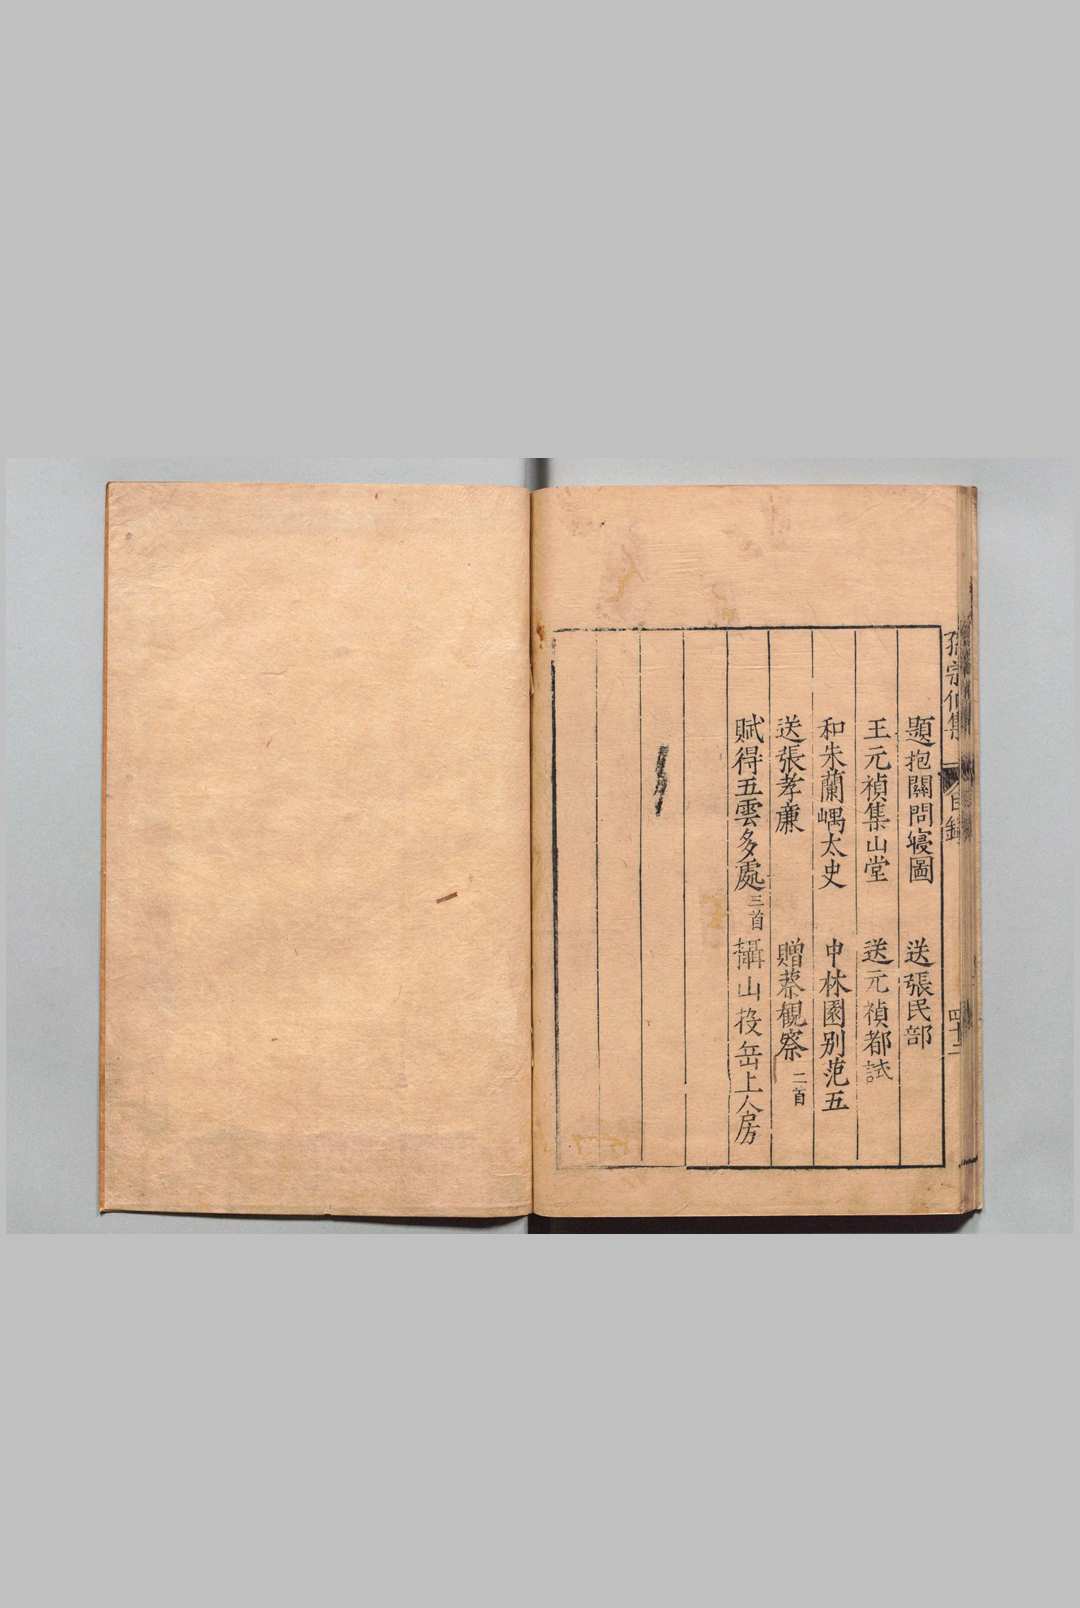 孫宗伯集
目錄
四十二
題抱關問寢圖 送張民部
王元禎集山堂 送元禎都試
和朱蘭嵎太史 申林園別范五
送張孝廉 贈蔡觀察二首
賦得五雲多處三首 攝山投岳上人房